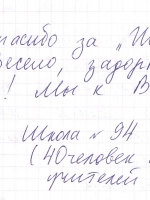 пасибо за „Ш
весело, задор
! Мы к В
Школа № 94
(40 человек
учителей